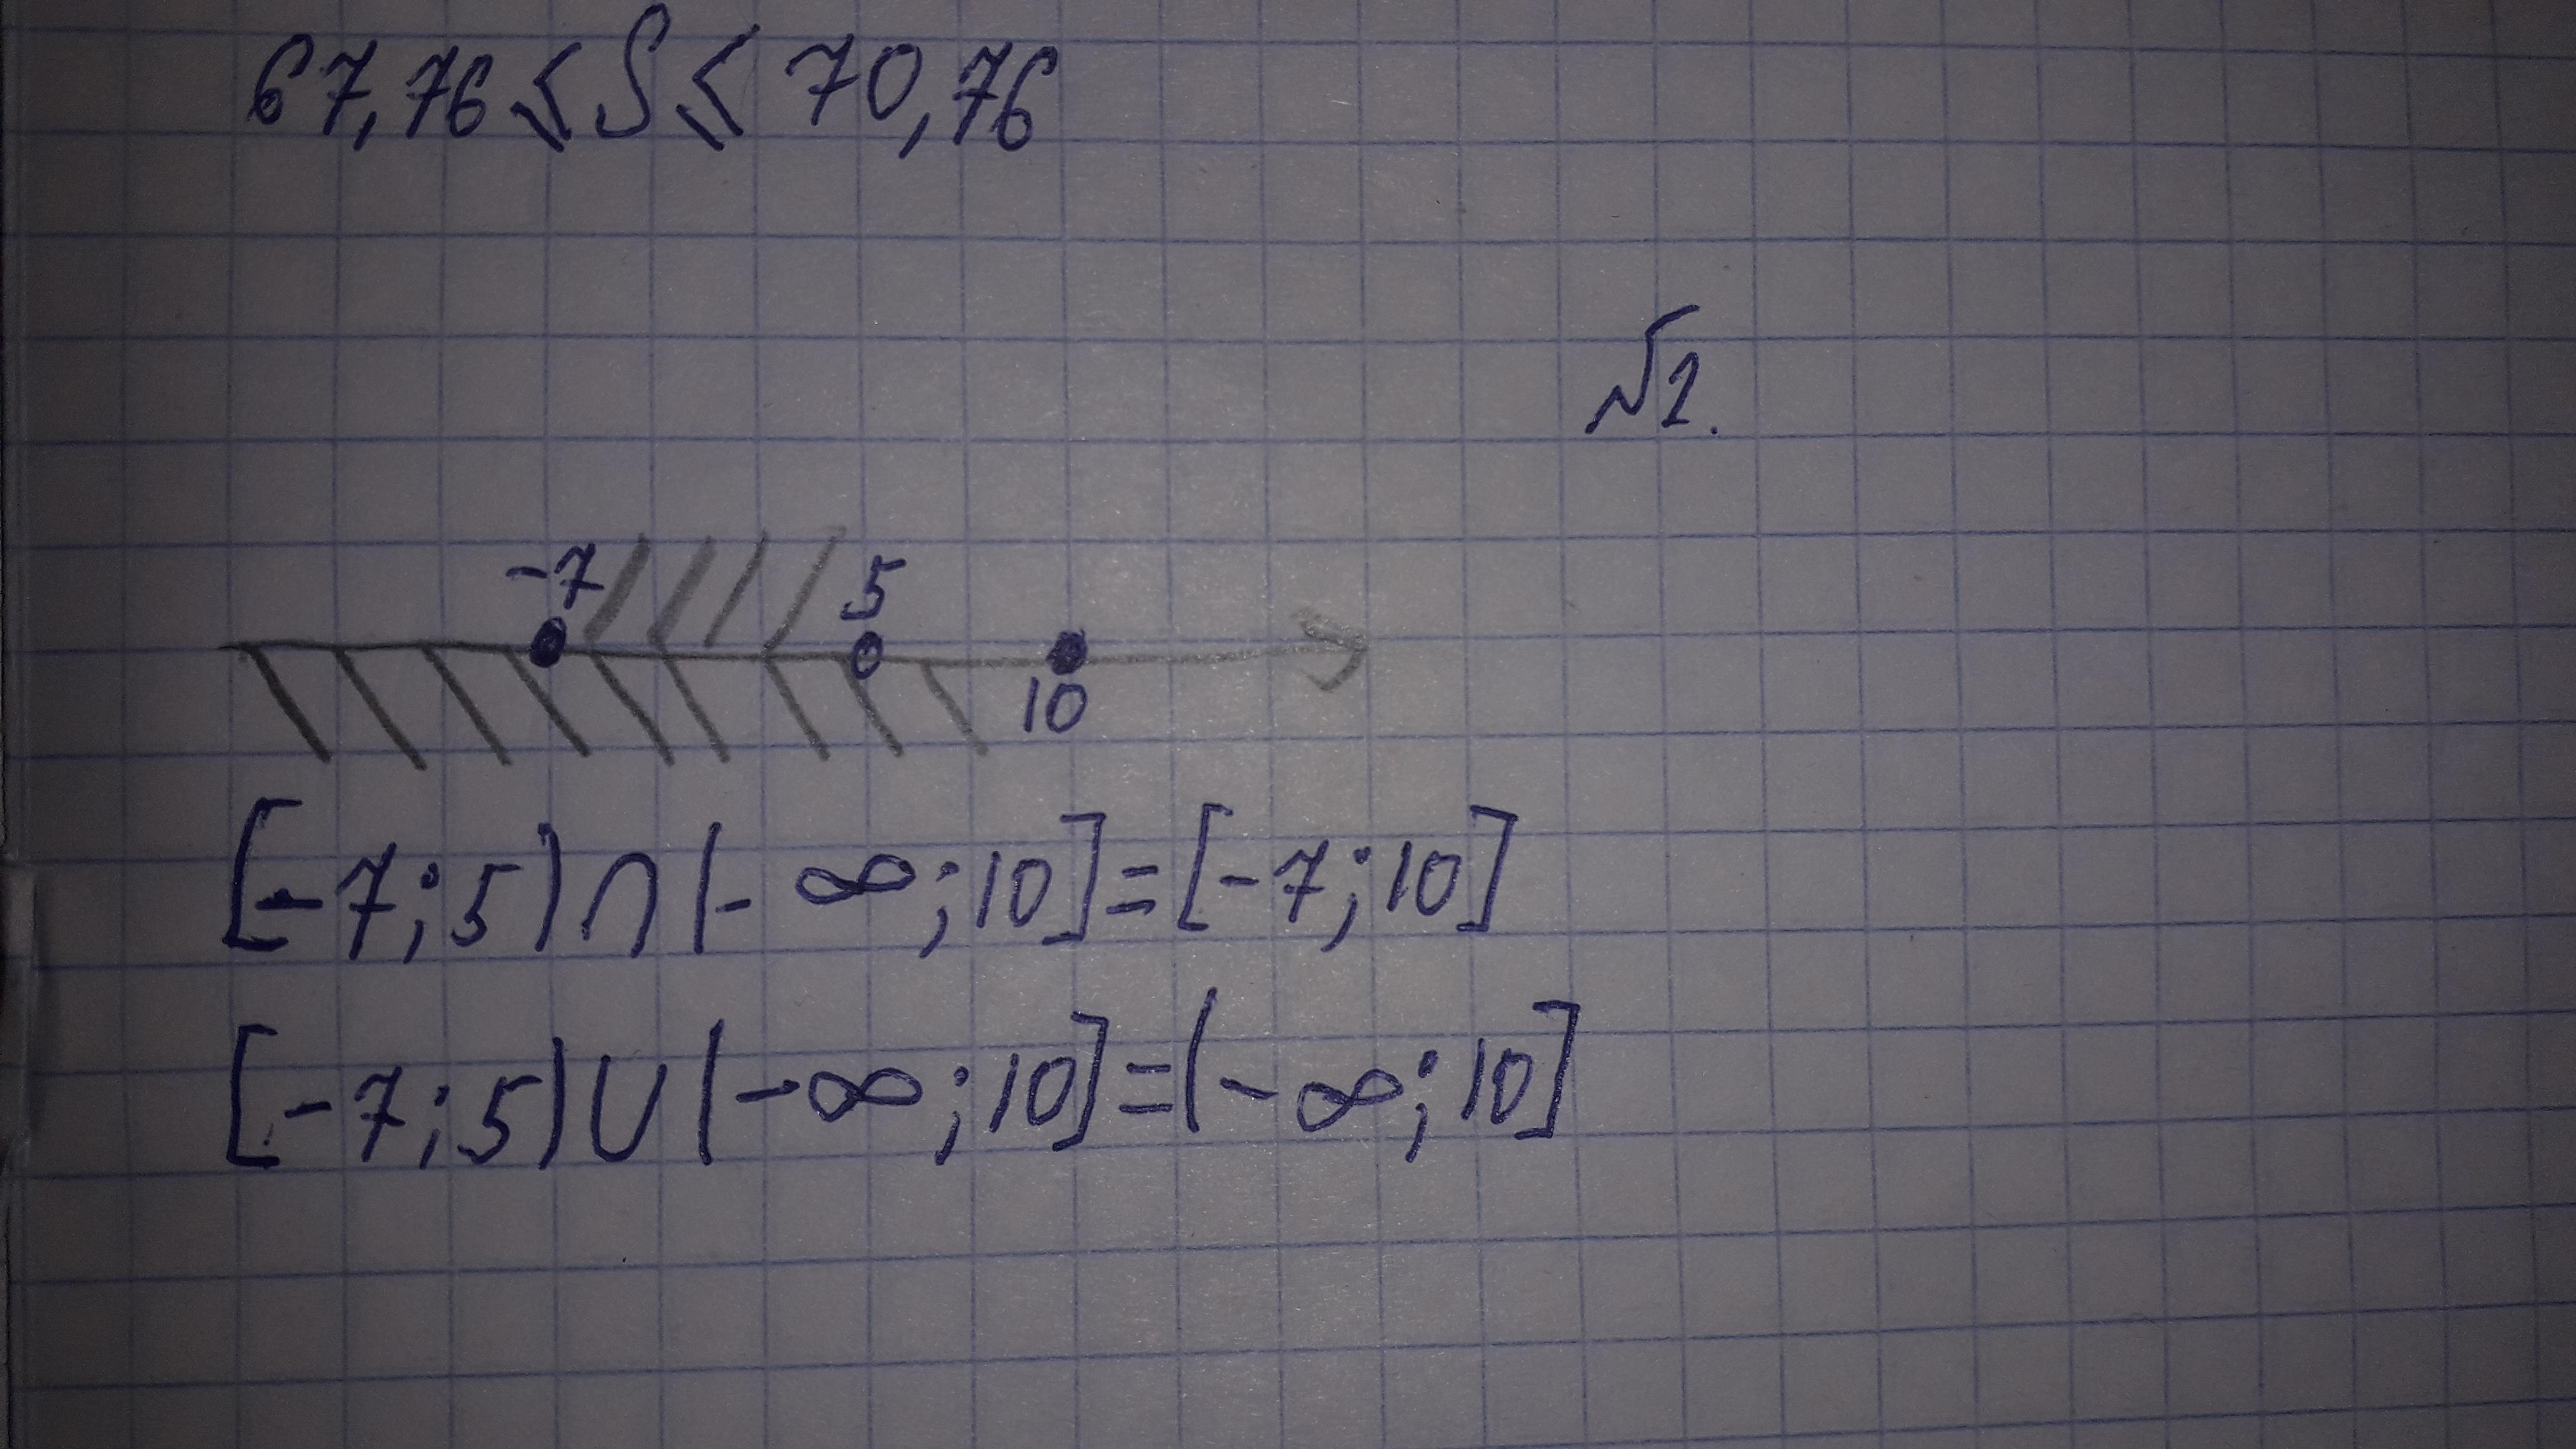 67,76 ≤ S ≤ 70,76
√2.
-7 5
10
[-7;5)∩(-∞;10]=[-7;10]
[-7;5)∪(-∞;10]=(-∞;10]